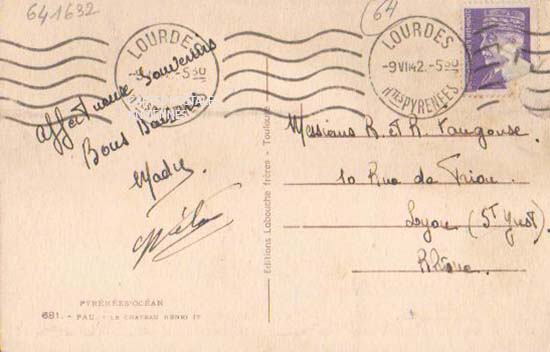 641632
64
LOURDES
5 30
LOURDES
-9 VII 42.-5 30
Htes PYRENEES
Affectueux Souvenirs
Bons Baisers
Messieurs R. et R.
10 Rue de Trion.
Lyon (St Just)
Rhône.
Editions Labouche frères - Toulouse
PYRÉNÉES-OCÉAN
681. - PAU. - LE CHATEAU HENRI IV